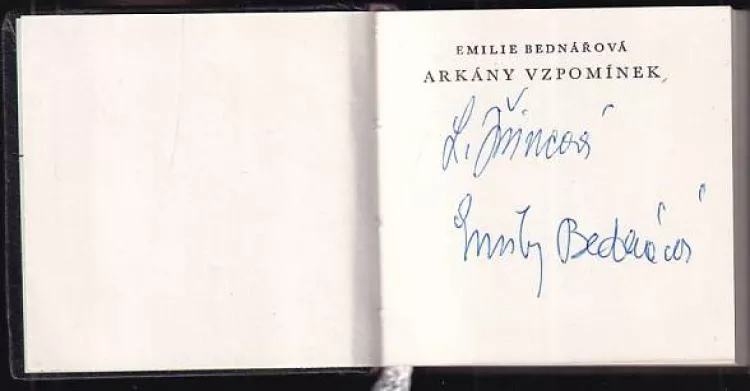 EMILIE BEDNÁŘOVÁ
ARKÁNY VZPOMÍNEK
L. Jiřincová
Emily Bednářová